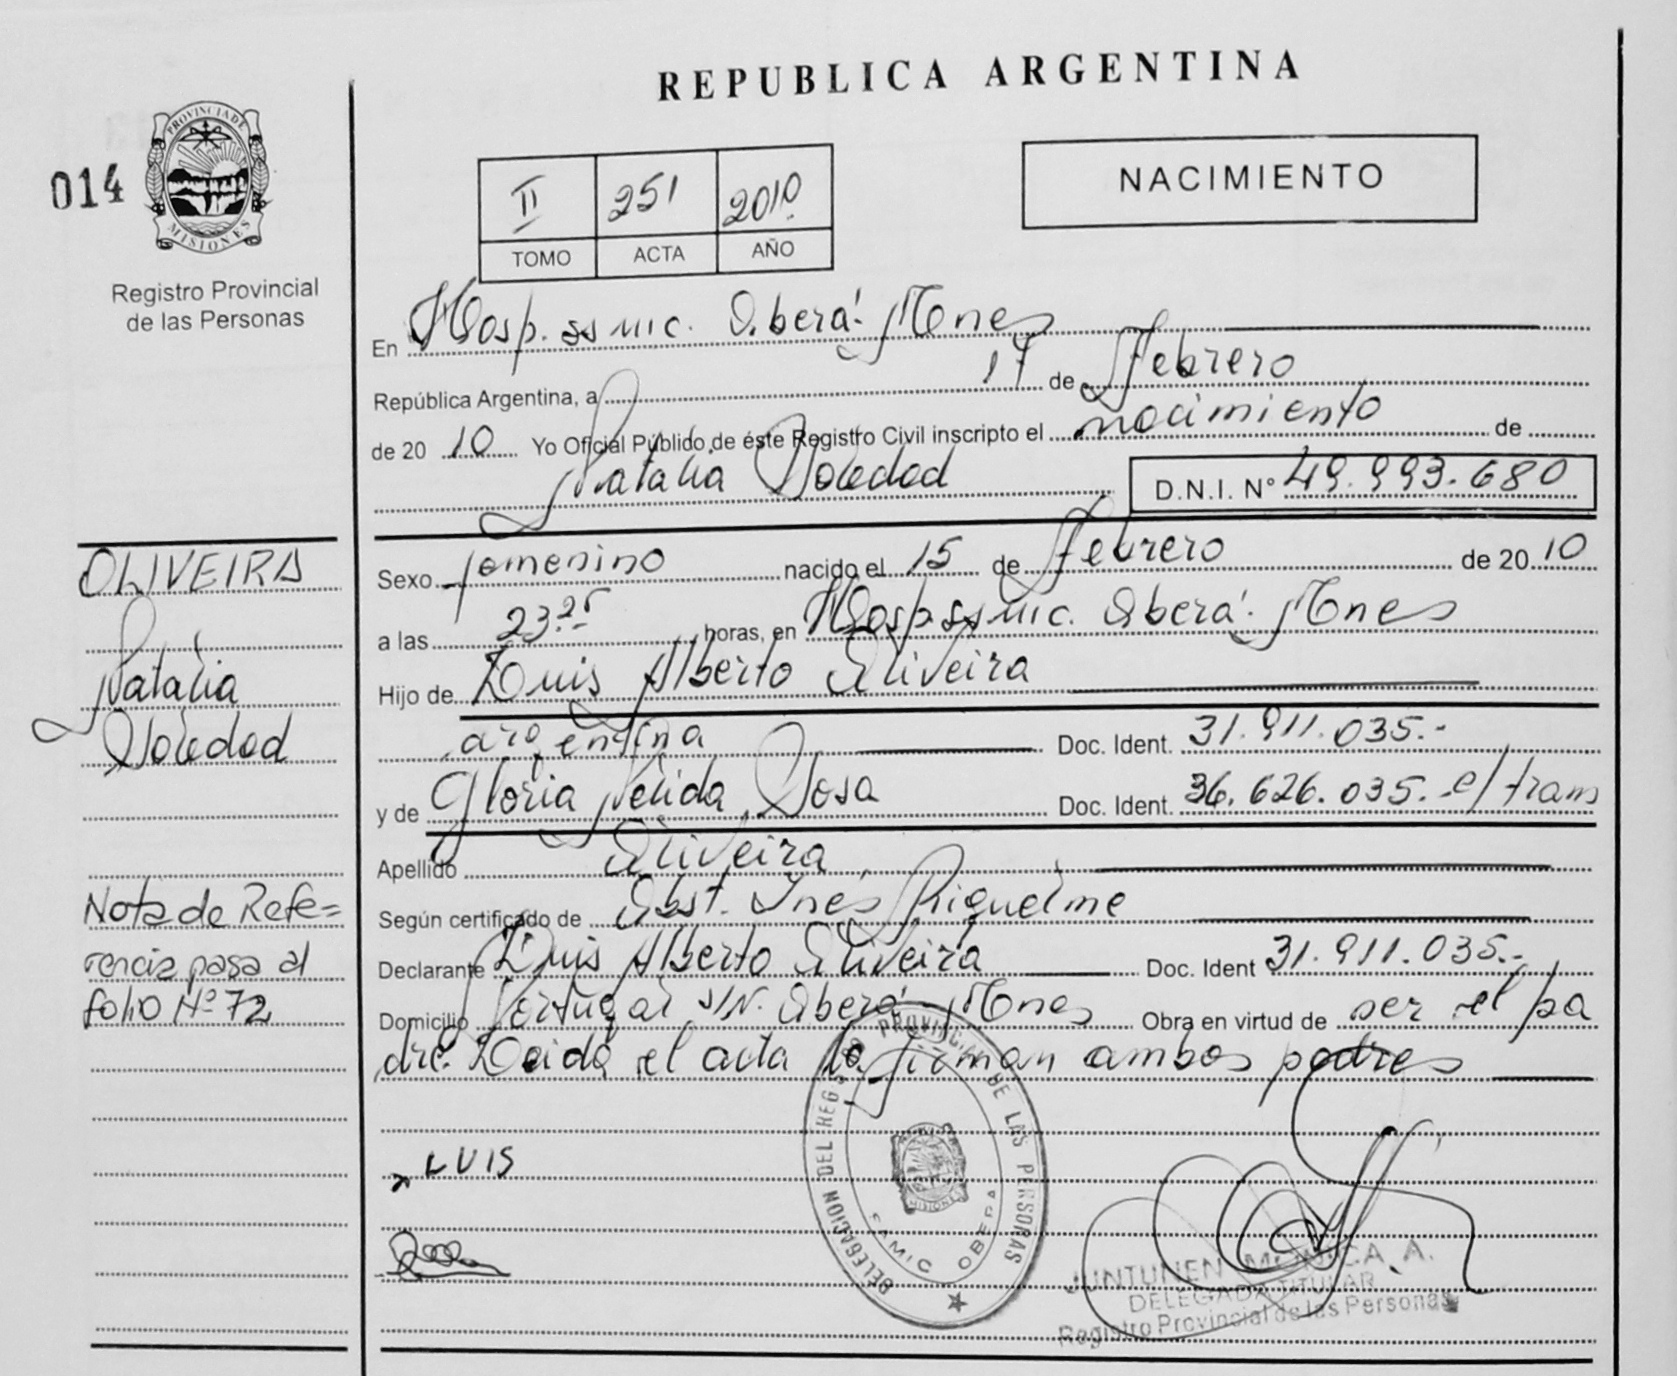 REPUBLICA ARGENTINA
014
PROVINCIA DE MISIONES
Registro Provincial
de las Personas
II 251 2010
TOMO ACTA AÑO
NACIMIENTO
En Hosp. ss mic. Oberá. Mnes
República Argentina, a 17 de febrero
de 20 10 Yo Oficial Público de éste Registro Civil inscripto el nacimiento de
Natalia Soledad D.N.I. Nº 49.993.680
Sexo femenino nacido el 15 de febrero de 20 10
a las 23.25 horas, en Hosp. ss mic. Oberá. Mnes
Hijo de Luis Alberto Oliveira
argentina Doc. Ident. 31.911.035.-
y de Gloria Nélida Sosa Doc. Ident. 36.626.035. e/tram
Apellido Oliveira
Según certificado de Obst. Inés Riquelme
Declarante Luis Alberto Oliveira Doc. Ident 31.911.035.-
Domicilio Portugal S/N. Oberá Mnes Obra en virtud de ser el pa
dre. Leida el acta la firman ambos padres
OLIVEIRA
Natalia
Soledad
Nota de Refe=
rencia pasa al
folio Nº 72
LUIS
DELEGACION DEL REGISTRO PROVINCIAL DE LAS PERSONAS
SAMIC OBERA
MISIONES
JUNTUNEN MONICA A.
DELEGADA TITULAR
Registro Provincial de las Personas